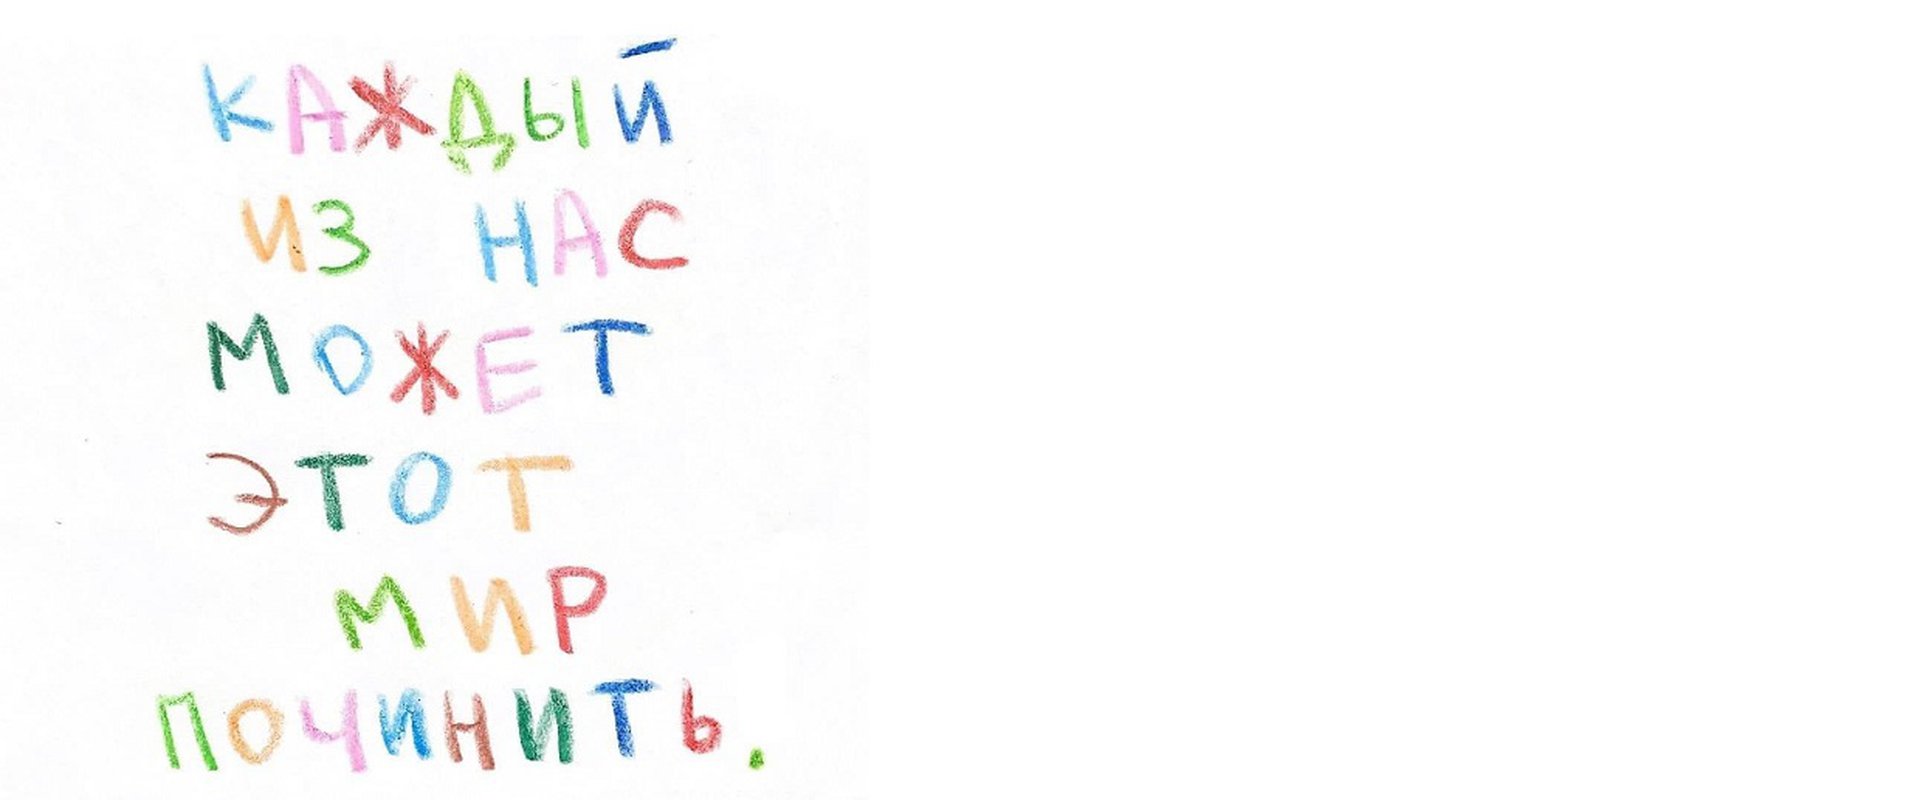 КАЖДЫЙ
ИЗ НАС
МОЖЕТ
ЭТОТ
МИР
ПОЧИНИТЬ.